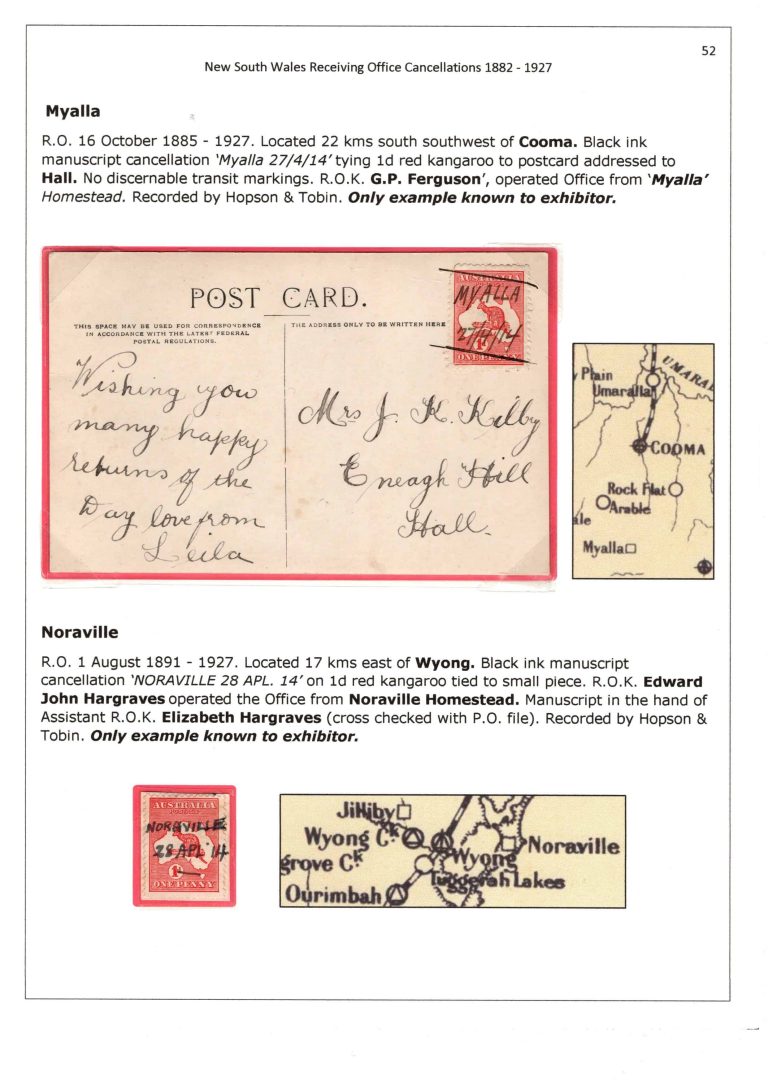 52
New South Wales Receiving Office Cancellations 1882 - 1927
Myalla
R.O. 16 October 1885 - 1927. Located 22 kms south southwest of Cooma. Black ink
manuscript cancellation ‘Myalla 27/4/14’ tying 1d red kangaroo to postcard addressed to
Hall. No discernable transit markings. R.O.K. G.P. Ferguson’, operated Office from ‘Myalla’
Homestead. Recorded by Hopson & Tobin. Only example known to exhibitor.
POST CARD.
THIS SPACE MAY BE USED FOR CORRESPONDENCE
IN ACCORDANCE WITH THE LATEST FEDERAL
POSTAL REGULATIONS.
THE ADDRESS ONLY TO BE WRITTEN HERE
AUSTRALIA
MYALLA
27/4/14
1D
ONE PENNY
Wishing you
many happy
returns of the
Day love from
Leila
Mrs J. K. Kilby
Eneagh Hill
Hall.
Plain
UMARAL
Umaralla
COOMA
Rock Flat
Arable
ale
Myalla
Noraville
R.O. 1 August 1891 - 1927. Located 17 kms east of Wyong. Black ink manuscript
cancellation ‘NORAVILLE 28 APL. 14’ on 1d red kangaroo tied to small piece. R.O.K. Edward
John Hargraves operated the Office from Noraville Homestead. Manuscript in the hand of
Assistant R.O.K. Elizabeth Hargraves (cross checked with P.O. file). Recorded by Hopson &
Tobin. Only example known to exhibitor.
AUSTRALIA
POSTAGE
NORAVILLE
28 APL 14
1D
ONE PENNY
Jilliby
Wyong Ck
Noraville
grove Ck
Wyong
Tuggerah Lakes
Ourimbah